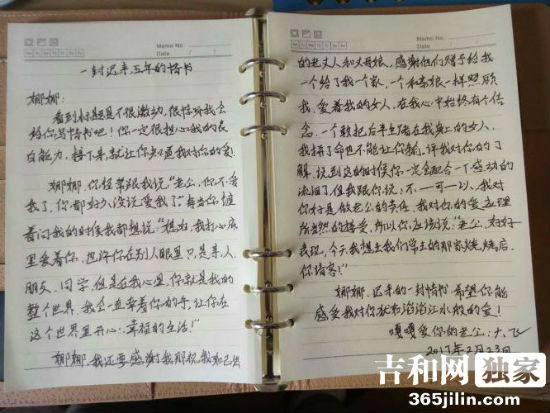 Memo No.
Date
一封迟来五年的情书
娜娜:
看到标题是不很激动,很惊讶我会
给你写情书吧!你一定很担心我的表
达能力,接下来,就让你知道我对你的爱!
娜娜,你经常跟我说“老公,你不爱
我了,你都好久没说爱我了”每当你追
着问我的时候我都想说“媳妇,我打心底
里爱着你,也许你在别人眼里只是亲人,
朋友,同学,但是在我心里,你就是我的
整个世界,我会一直牵着你的手,让你在
这个世界里开心、幸福的生活!”
娜娜,我还要感谢我那视我如己出
Memo No.
Date
的老丈人和丈母娘,感谢他们赠予给我
一个给了我一个家,一个和老娘一样照顾
我,爱着我的女人,在我心中始终有个信
念,一个敢把后半生赌在我身上的女人,
我拼了命也不能让你输,许我对你的了
解,说到这的时候你一定会配合一个感动的
流泪了,但我跟你说:不、可、以,我对
你好是做老公的责任,我对你的爱应理
所当然的接受,所以你应该说:“老公,好好
表现,今天我想去我们学去的那家烧烤店,
你请客!”
娜娜,迟来的一封情书,希望你能
感受我对你犹如滔滔江水般的爱!
嘎嘎爱你的老公:大飞
2017年2月23日
吉和网 独家
365jilin.com